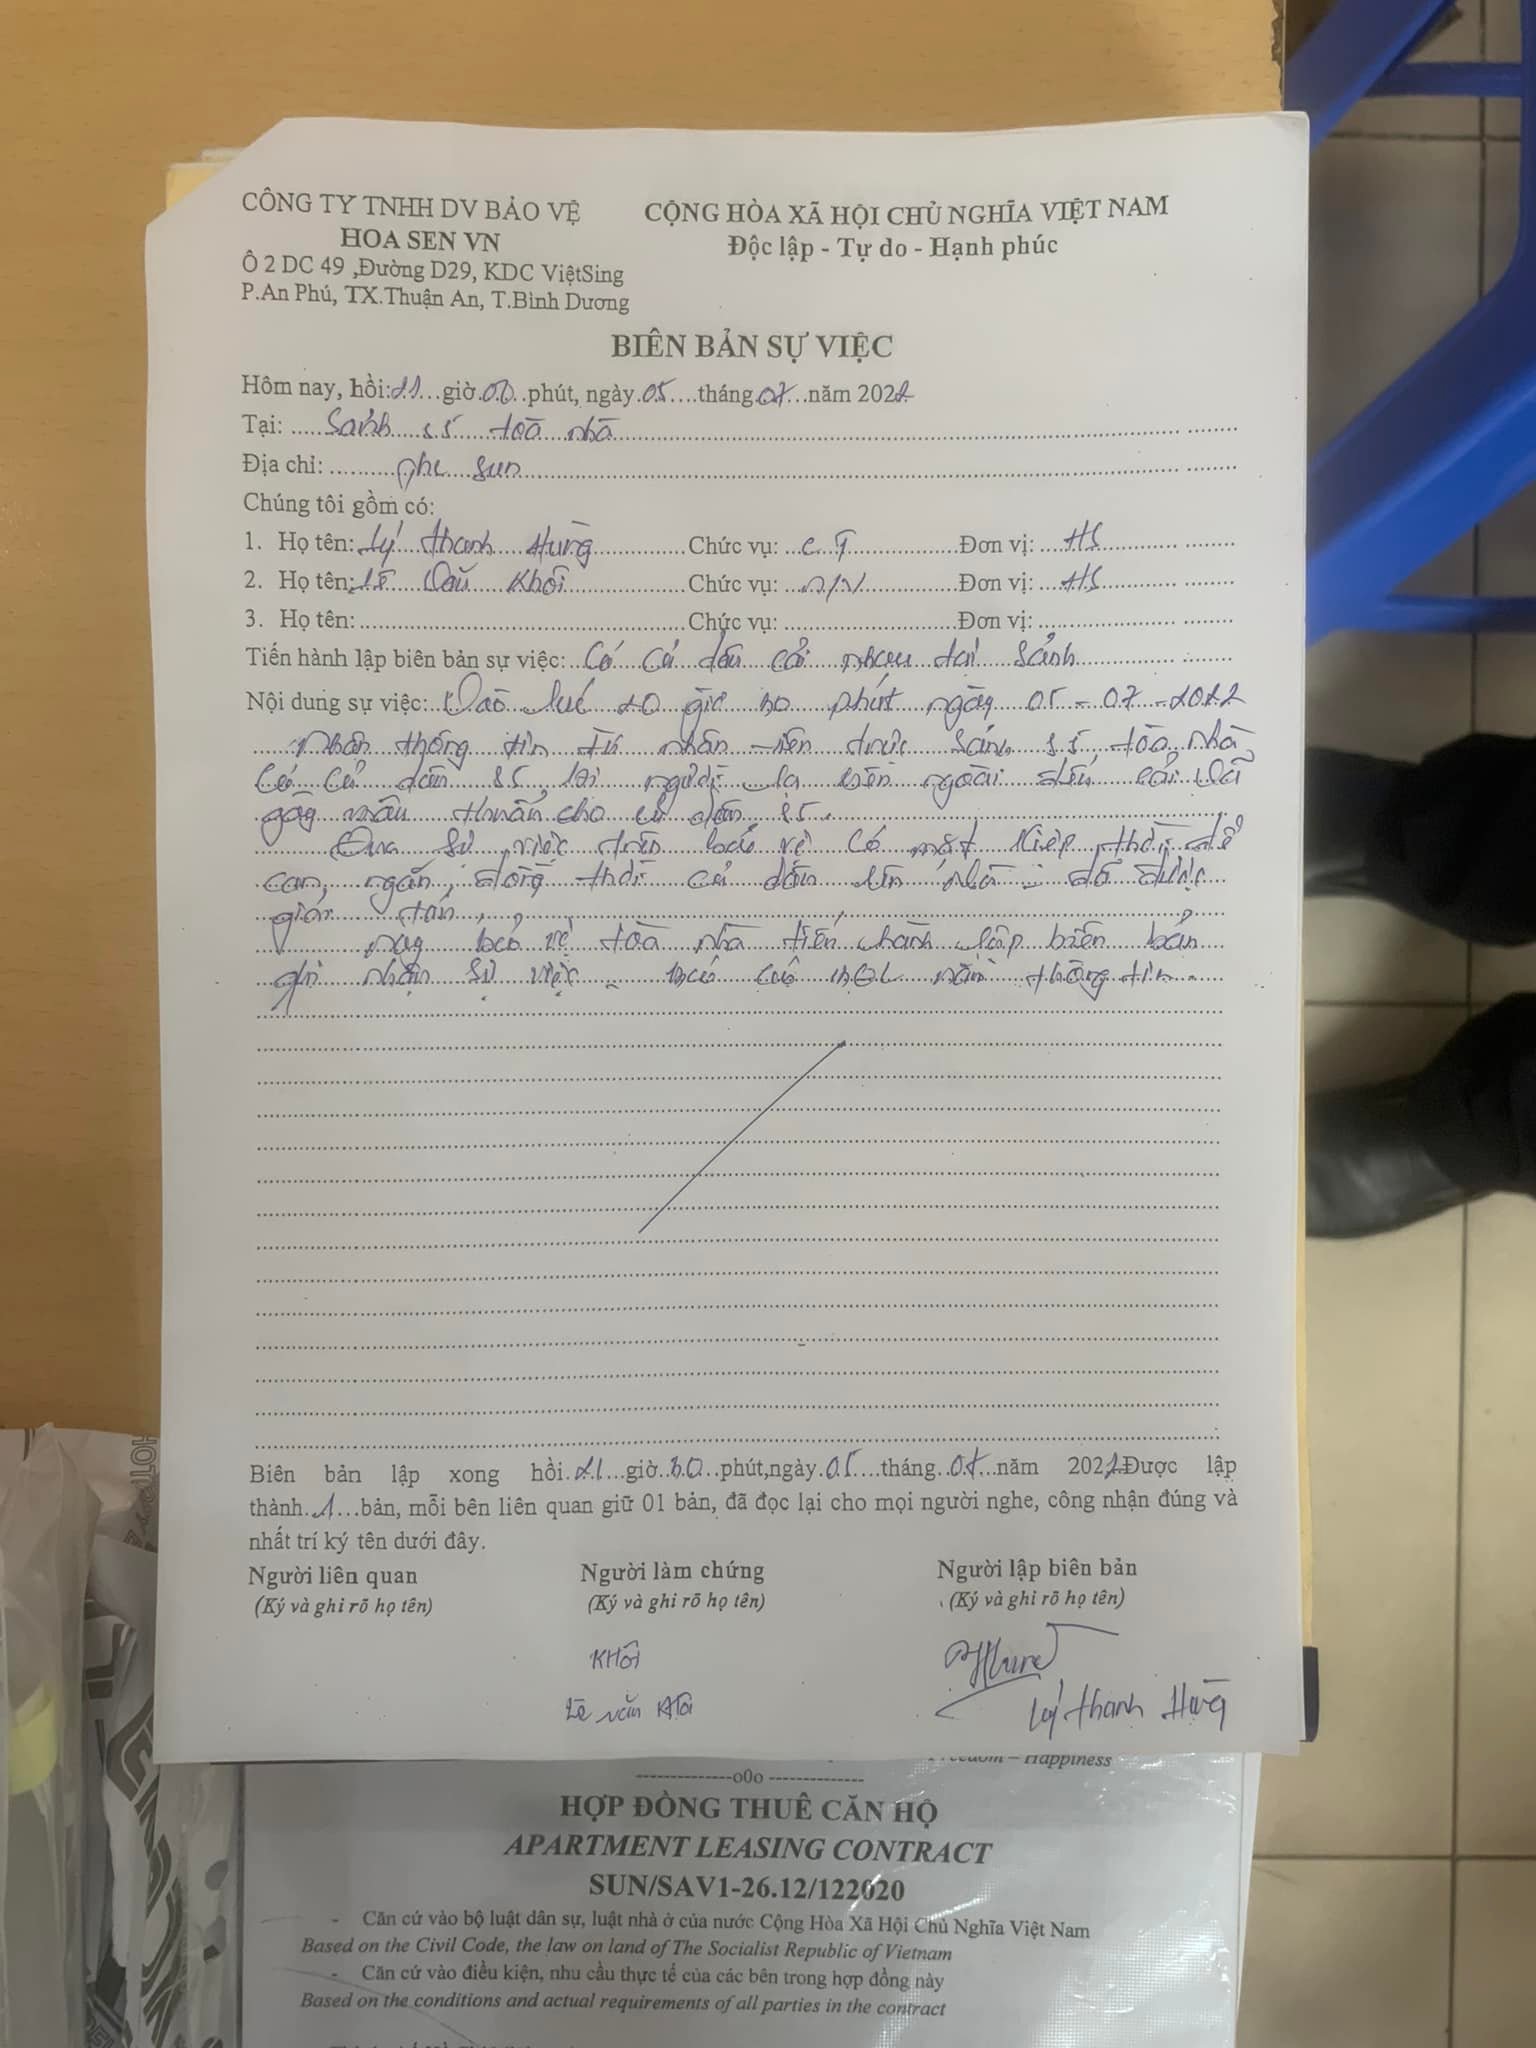 CÔNG TY TNHH DV BẢO VỆ
HOA SEN VN
Ô 2 DC 49 ,Đường D29, KDC ViệtSing
P.An Phú, TX.Thuận An, T.Bình Dương
CỘNG HÒA XÃ HỘI CHỦ NGHĨA VIỆT NAM
Độc lập - Tự do - Hạnh phúc
BIÊN BẢN SỰ VIỆC
Hôm nay, hồi: 21 giờ 00 phút, ngày 05 tháng 07 năm 2022
Tại: Sảnh S5 tòa nhà
Địa chỉ: The Sun
Chúng tôi gồm có:
1. Họ tên: Lý Thanh Hùng Chức vụ: CT Đơn vị: HS
2. Họ tên: Lê Văn Khôi Chức vụ: N/V Đơn vị: HS
3. Họ tên: Chức vụ: Đơn vị:
Tiến hành lập biên bản sự việc: Có cư dân cải nhau tại sảnh
Nội dung sự việc: Vào lúc 20 giờ 30 phút ngày 05 - 07 - 2022
Nhận thông tin từ nhân viên trực sảnh S5 tòa nhà
Có cư dân S5 bị người lạ bên ngoài đến cải và
gây mâu thuẩn cho cư dân S5.
Qua sự việc trên bảo vệ có mặt kiệp thời để
can ngăn, đồng thời cư dân lên nhà đã được
giải tán.
nay bảo vệ tòa nhà tiến hành lập biên bản
ghi nhận sự việc báo cáo BQL nắm thông tin.
Biên bản lập xong hồi 21 giờ 30 phút,ngày 05 tháng 07 năm 2022 Được lập
thành 1 bản, mỗi bên liên quan giữ 01 bản, đã đọc lại cho mọi người nghe, công nhận đúng và
nhất trí ký tên dưới đây.
Người liên quan Người làm chứng Người lập biên bản
(Ký và ghi rõ họ tên) (Ký và ghi rõ họ tên) (Ký và ghi rõ họ tên)
KHôi
Lê văn Khôi Lý Thanh Hùng
Freedom – Happiness
---------------o0o---------------
HỢP ĐỒNG THUÊ CĂN HỘ
APARTMENT LEASING CONTRACT
SUN/SAV1-26.12/122020
- Căn cứ vào bộ luật dân sự, luật nhà ở của nước Cộng Hòa Xã Hội Chủ Nghĩa Việt Nam
Based on the Civil Code, the law on land of The Socialist Republic of Vietnam
- Căn cứ vào điều kiện, nhu cầu thực tế của các bên trong hợp đồng này
Based on the conditions and actual requirements of all parties in the contract